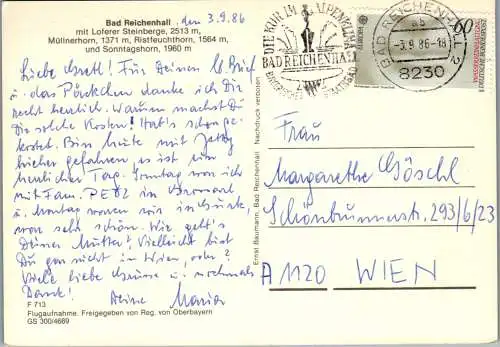 Bad Reichenhall , den 3.9.86
mit Loferer Steinberge, 2513 m,
Müllnerhorn, 1371 m, Ristfeuchthorn, 1564 m,
und Sonntagshorn, 1960 m
Liebe Gretl! Für Deinen lb. Brief
u. das Päckchen danke ich Dir
recht herzlich. Warum machst du
Dir solche Kosten! Hab's schon ge-
kostet. Bin heute mit
hierher gefahren, es ist ein
herrlicher Tag. Sonntag war ich
mit Fam. PETZ in
u. Montag waren wir in
war sehr schön. Wie geht's
Deiner Mutter? Vielleicht bist
Du gar nicht in Wien, oder?
Viele liebe Grüsse u. nochmals
Danke! Deine Maria
F 713
Flugaufnahme. Freigegeben von Reg. von Oberbayern
GS 300/4669
Ernst Baumann, Bad Reichenhall Nachdruck verboten
DIE KUR IM ALPENKLIMA
BAD REICHENHALL
BAYERISCHES STAATSBAD
BAD REICHENHALL 2
ab
-3.9.86-18
8230
60
EUROPA
DEUTSCHE BUNDESPOST
Frau
Margarethe Göschl
Schönbrunnerstr. 293/6/23
A 1120 WIEN